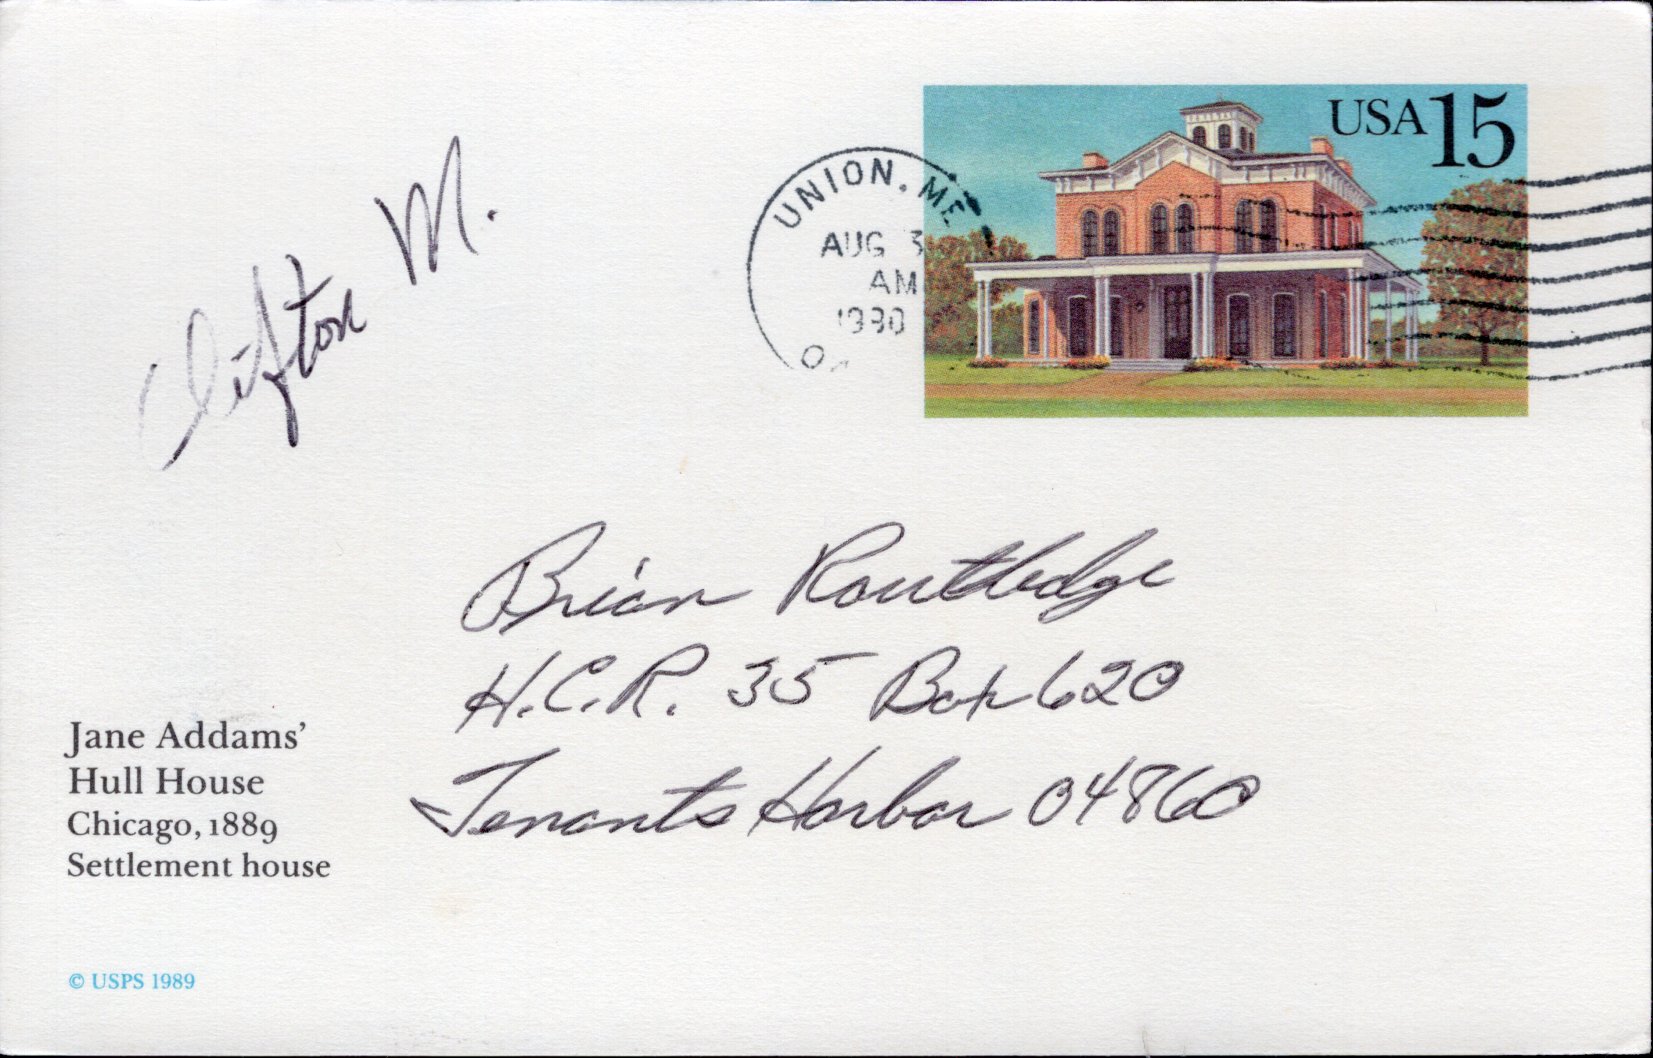 Clifton M.
USA 15
UNION, ME
AUG 3
AM
1990
04
Brian Routledge
H.C.R. 35 Box 620
Tenants Harbor 04860
Jane Addams'
Hull House
Chicago, 1889
Settlement house
© USPS 1989